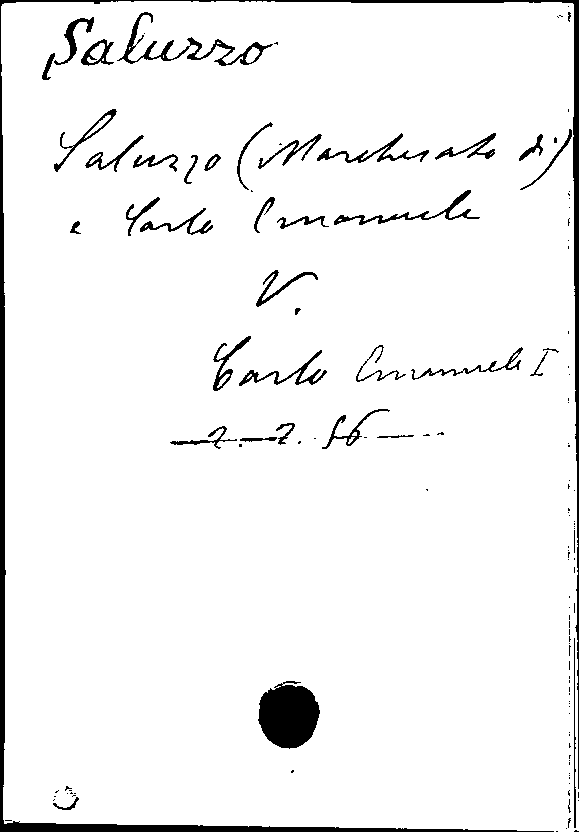 Saluzzo
Saluzzo (Marchesato di)
e Carlo Emanuele
V.
Carlo Emanuele I
2. 2. 56